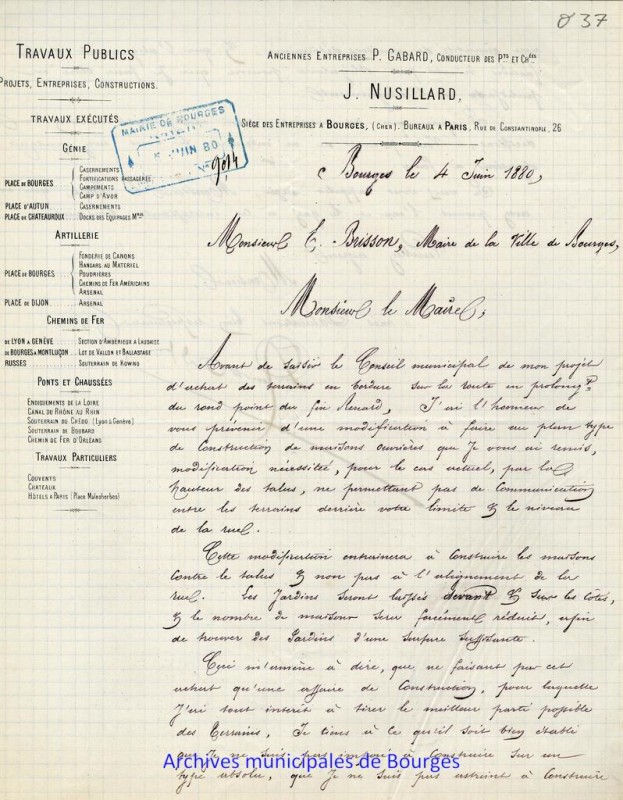 O 37
TRAVAUX PUBLICS
PROJETS, ENTREPRISES, CONSTRUCTIONS.
TRAVAUX EXÉCUTÉS
GÉNIE
PLACE DE BOURGES
CASERNEMENTS
FORTIFICATIONS PASSAGÈRES
CAMPEMENTS
CAMP D'AVOR
PLACE D'AUTUN CASERNEMENTS
PLACE DE CHATEAUROUX DOCKS DES ÉQUIPAGES Mres
ARTILLERIE
PLACE DE BOURGES
FONDERIE DE CANONS
HANGARS AU MATÉRIEL
POUDRIÈRES
CHEMINS DE FER AMÉRICAINS
ARSENAL
PLACE DE DIJON ARSENAL
CHEMINS DE FER
DE LYON A GENÈVE SECTION D'AMBÉRIEUX A
DE BOURGES A MONTLUÇON LOT DE VALLON ET BALLASTAGE
RUSSES SOUTERRAIN DE KOWNO
PONTS ET CHAUSSÉES
ENDIGUEMENTS DE LA LOIRE
CANAL DE RHÔNE AU RHIN
SOUTERRAIN DU CRÉDO (Lyon à Genève)
SOUTERRAIN DE
CHEMIN DE FER D'ORLÉANS
TRAVAUX PARTICULIERS
COUVENTS
CHATEAUX
HÔTELS A PARIS (Place Malesherbes)
ANCIENNES ENTREPRISES P. GABARD, CONDUCTEUR DES Pts ET Chées
J. NUSILLARD,
SIÈGE DES ENTREPRISES A BOURGES, (CHER). BUREAUX A PARIS, RUE DE CONSTANTINOPLE, 26
MAIRIE DE BOURGES
5 JUIN 80
9014
Bourges le 4 Juin 1880,
Monsieur E. Brisson, Maire de la Ville de Bourges,
Monsieur le Maire,
Avant de saisir le Conseil municipal de mon projet
d'achat des terrains en bordure sur la route en prolongt
du rond point du fin Renard, J'ai l'honneur de
vous prévenir d'une modification à faire au plan type
de Construction de maisons ouvrières que Je vous ai remis,
modification nécessitée, pour le cas actuel, par la
hauteur des talus, ne permettant pas de Communication
entre les terrains derrière votre limite & le niveau
de la rue.
Cette modification entrainera à Construire les maisons
Contre le talus & non pas à l'alignement de la
rue. Les Jardins seront laissés devant & sur les côtés,
& le nombre de maisons sera forcément réduit, afin
de trouver des Jardins d'une surface suffisante.
Ceci m'amène à dire, que ne faisant par cet
achat qu'une affaire de Construction, pour laquelle
J'ai tout intérêt à tirer le meilleur parti possible
des Terrains, Je tiens à ce qu'il soit bien établi
que Je ne suis pas à Construire sur un
type absolu, que Je ne suis pas astreint à Construire
Archives municipales de Bourges